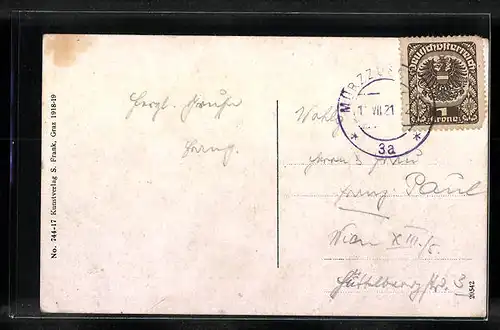 No. 744-17 Kunstverlag S. Frank, Graz 1918-19
Herzl. Grüße
Franz
MÜRZZU
VII 21
* 3a *
Deutschösterreich
1
Krone
Herrn & Frau
Franz Paul
Wien XIII/5
3
20542